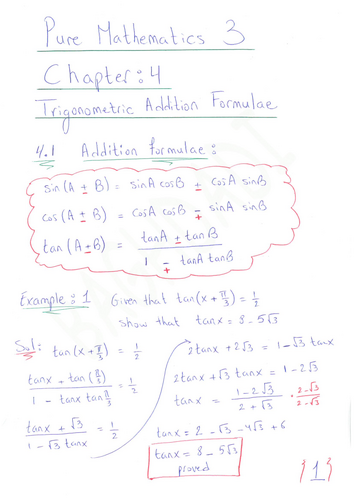 Pure Mathematics 3
Chapter:4
Trigonometric Addition Formulae
4.1 Addition formulae:
sin(A ± B) = sinA cosB ± cosA sinB
cos(A ± B) = cosA cosB ∓ sinA sinB
tan(A ± B) = (tanA ± tanB) / (1 ∓ tanA tanB)
Example:1 Given that tan(x + π/3) = 1/2
show that tanx = 8 - 5√3
Sol: tan(x + π/3) = 1/2
(tanx + tan(π/3)) / (1 - tanx tan π/3) = 1/2
(tanx + √3) / (1 - √3 tanx) = 1/2
2tanx + 2√3 = 1 - √3 tanx
2tanx + √3 tanx = 1 - 2√3
tanx = (1 - 2√3) / (2 + √3) * (2 - √3) / (2 - √3)
tanx = 2 - √3 - 4√3 + 6
tanx = 8 - 5√3
proved
{1}